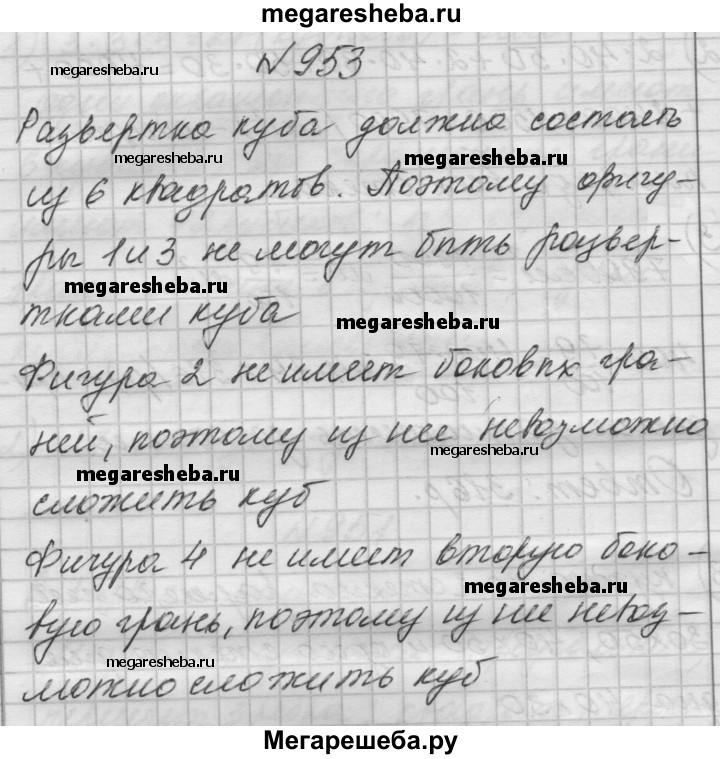 megaresheba.ru
№953
megaresheba.ru
Развертка куба должна состоять
megaresheba.ru
megaresheba.ru
из 6 квадратов. Поэтому фигу-
ры 1 и 3 не могут быть развер-
megaresheba.ru
тками куба
megaresheba.ru
Фигура 2 не имеет боковых гра-
ней, поэтому из нее невозможно
megaresheba.ru
megaresheba.ru
сложить куб
Фигура 4 не имеет вторую боко-
megaresheba.ru
вую грань, поэтому из нее невоз-
megaresheba.ru
можно сложить куб
Мегарешеба.ру